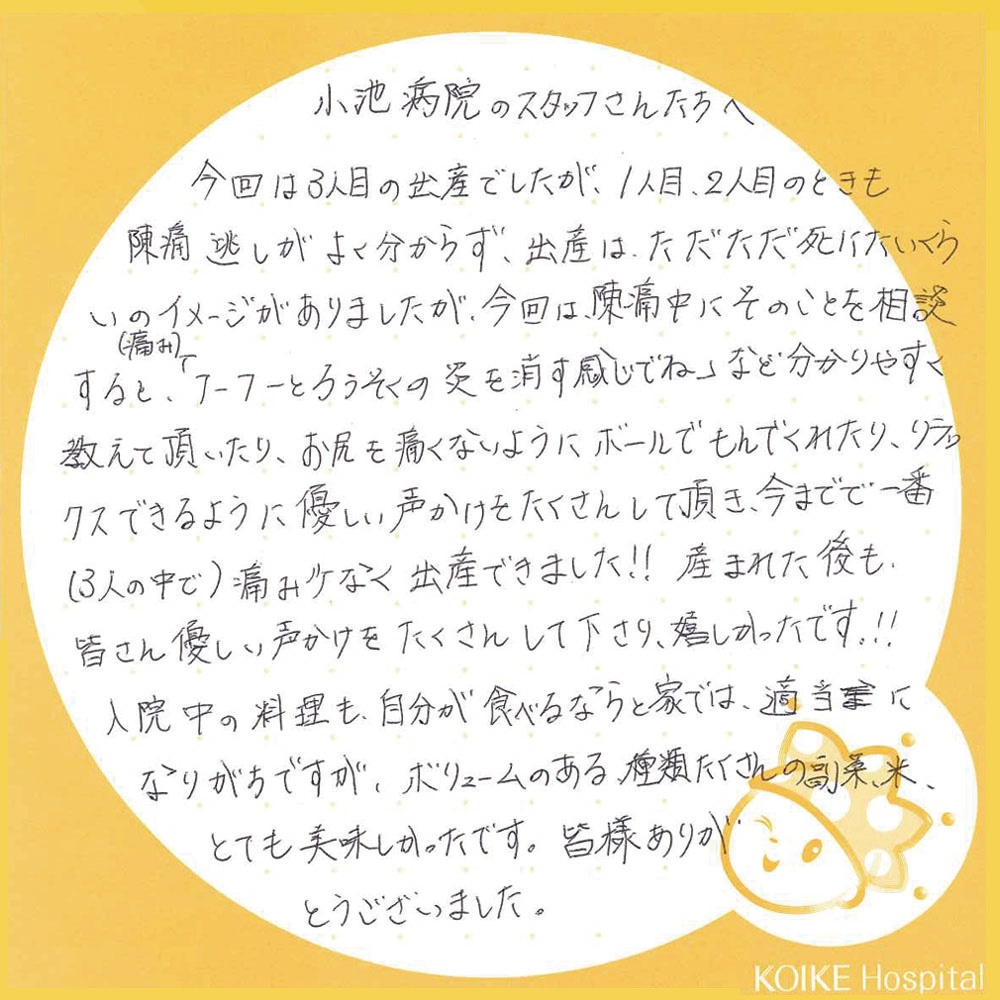 小池病院のスタッフさんたちへ
今回は3人目の出産でしたが、1人目、2人目のときも
陳痛逃しがよく分からず、出産は、ただただ死にたいくら
いのイメージがありましたが、今回は、陳痛中にそのことを相談
(痛み)
すると、「フーフーとろうそくの炎を消す感じでね」など分かりやすく
教えて頂いたり、お尻を痛くないようにボールでもんでくれたり、リラッ
クスできるように優しい声かけをたくさんして頂き、今までで一番
(3人の中で)痛みケなく出産できました!!産まれた後も、
皆さん優しい声かけをたくさんして下さり、嬉しかったです。!!
入院中の料理も、自分が食べるならと家では、適当に
なりがちですが、ボリュームのある、種類たくさんの副菜、米、
とても美味しかったです。皆様ありが
とうございました。
KOIKE Hospital